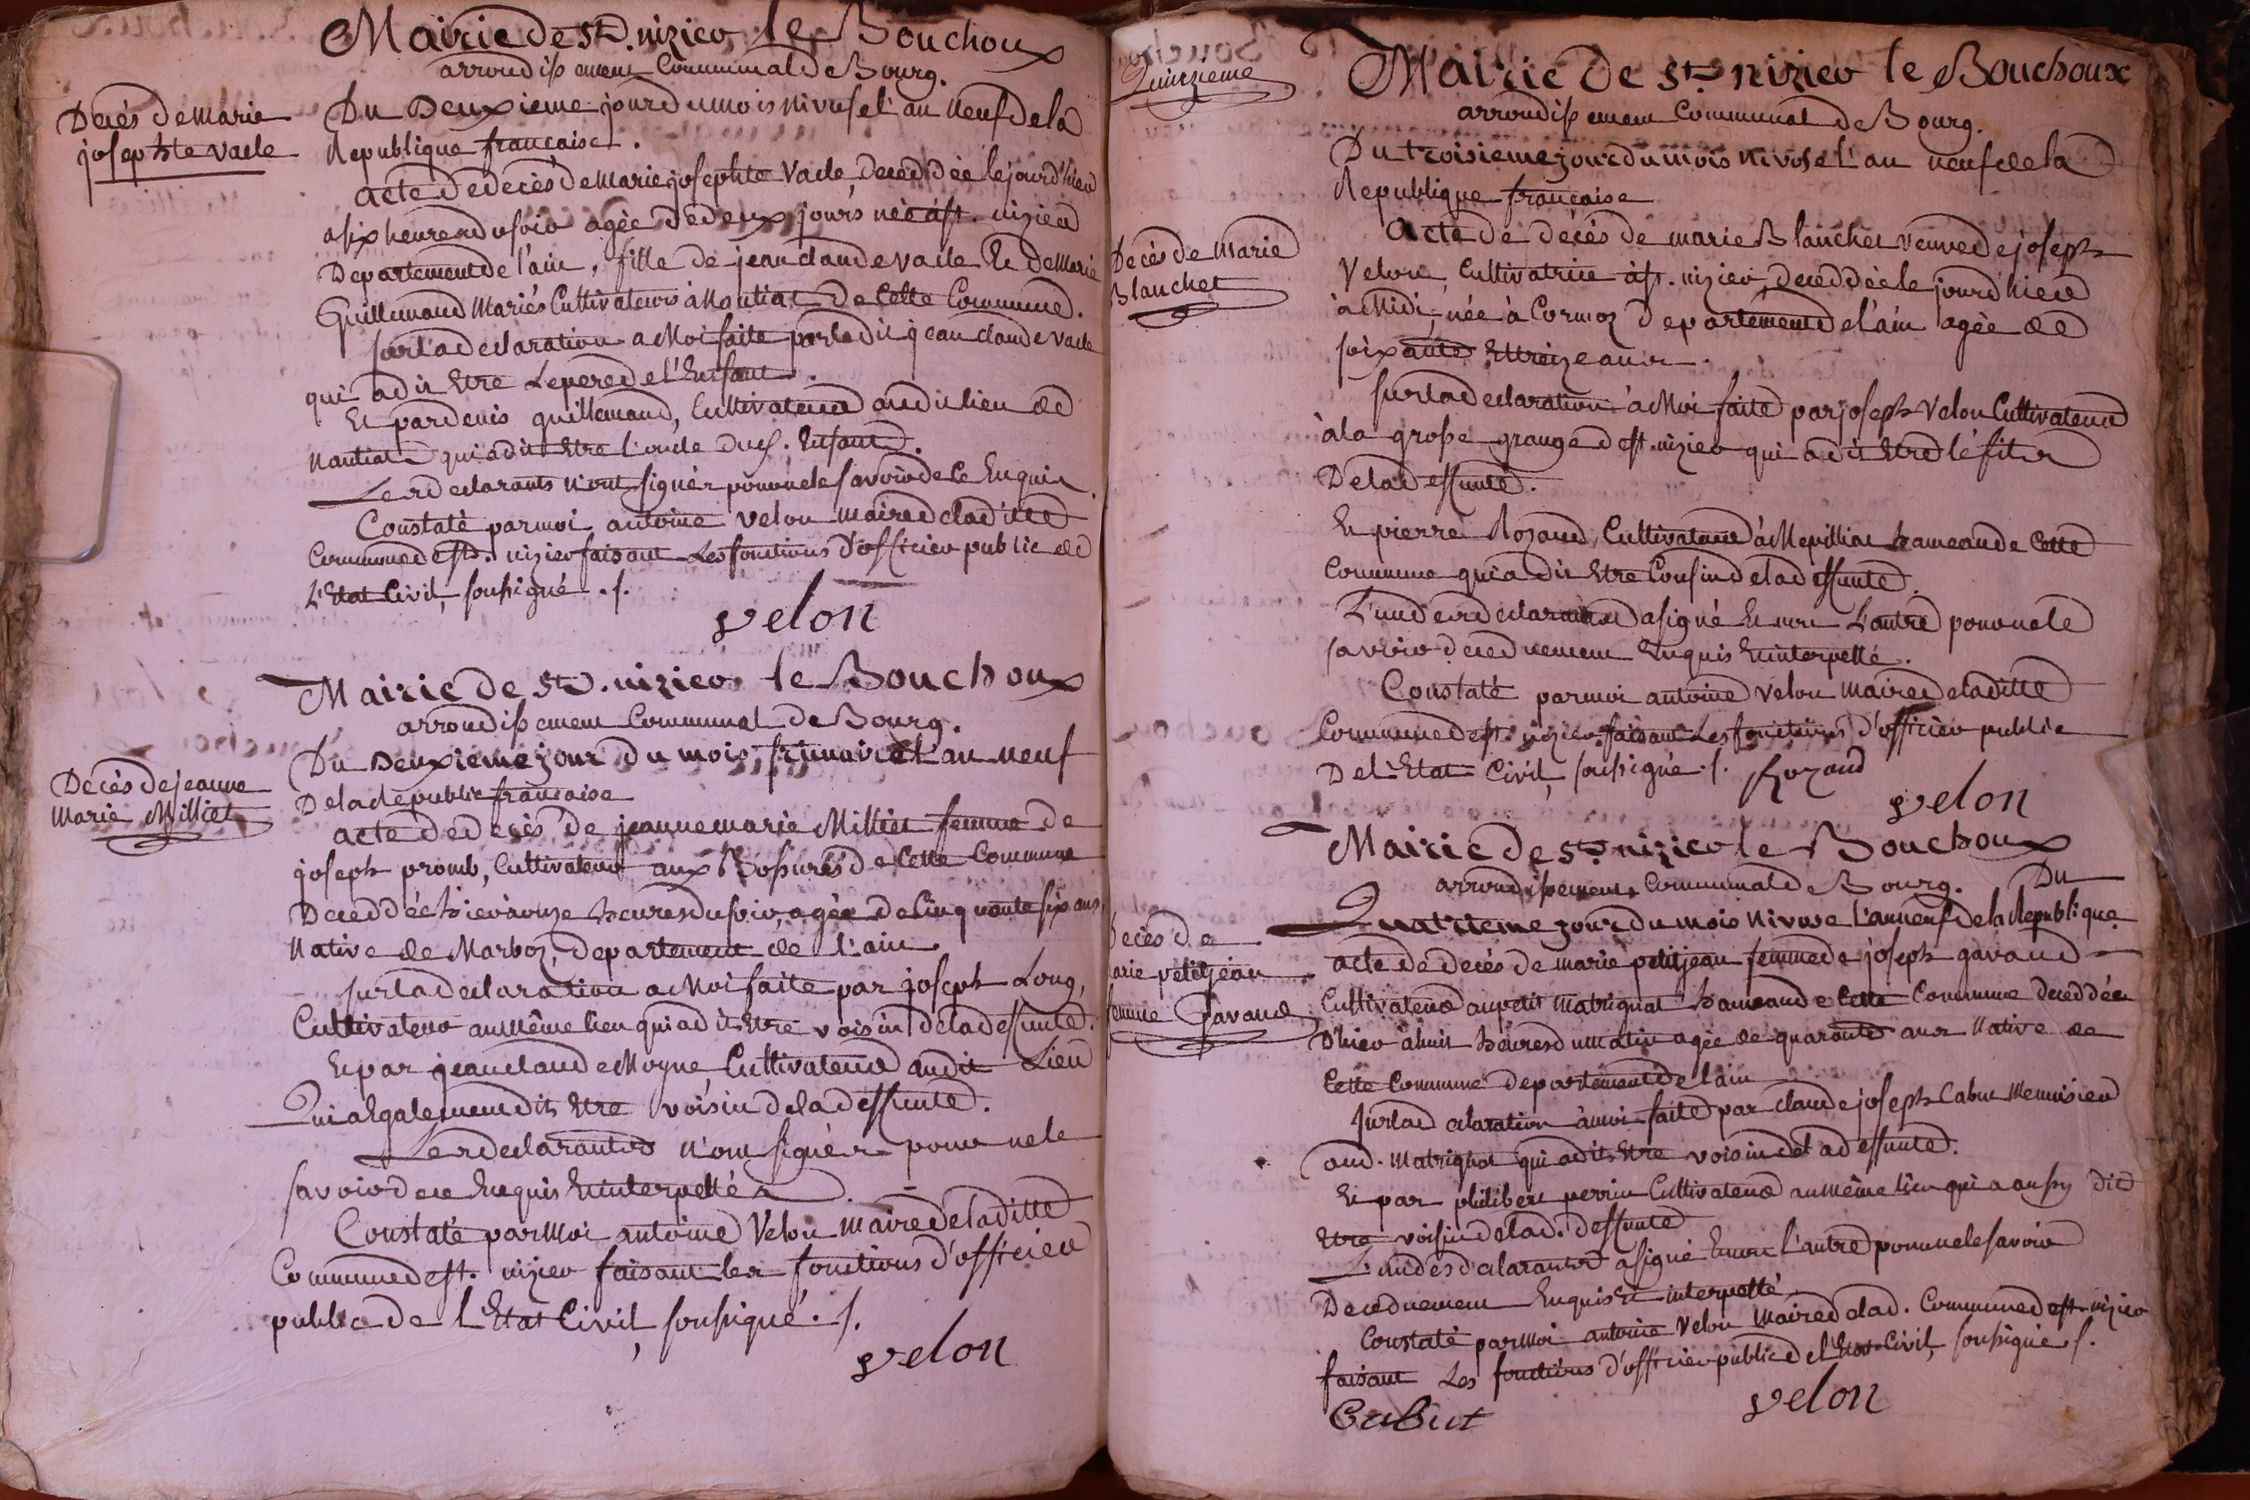 Mairie de St. nizier le Bouchoux
arrondissement Communal de Bourg.
Decès de marie
josephte vacle
Du Deuxieme jour du mois nivose l'an neuf de la
Republique francaise.
acte de decès de marie josephte Vacle, deceddée le jour d'hier
a six heures du soir agée de deux jours née à st. nizier
Departement de l'ain, fille de jean claude vacle Et de Marie
Guillemaud Mariés Cultivateurs à Nantiat de Cette Commune.
sur la declaration a Moi faite par le dit jean claude vacle
qui a dit Etre Le pere de l'Enfant.
Et par denis guillemaud, Cultivateur audit lieu de
Nantiat qui a dit Etre l'oncle dud. Enfant.
Les declarants n'ont signér pour ne le savoir de Ce Enquis.
Constaté par moi antoine velon maire de la ditte
Commune de st. nizier faisant Les fonctions d'officier public de
L'Etat Civil, soussigné ./.
velon
Mairie de St. nizier le Bouchoux
arrondissement Communal de Bourg.
Decès de jeanne
Marie Milliet
Du Deuxieme jour du mois frimaire l'an neuf
De la Republic francaise
acte de decès de jeanne marie Milliet femme de
joseph promb, Cultivateur aux Bossures de Cette Commune
Deceddée hier à onze heures du soir, agée de Cinquante six ans,
Native de Marboz, departement de l'ain.
sur la declaration a Moi faite par joseph Long,
Cultivateur au même lieu qui a dit Etre voisin de la deffunte.
Et par jean claude Moyne Cultivateur audit Lieu
Qui a Egalement dit Etre voisin de la deffunte.
Les declarants n'ont signér pour ne le
savoir de ce Enquis Et interpellés.
Constaté par Moi antoine Velon maire de la ditte
Commune de st. nizier faisant les fonctions d'officier
public de l'Etat Civil, soussigné ./.
velon
Quinzieme
Mairie de St. nizier le Bouchoux
arrondissement Communal de Bourg.
Du troisieme jour du mois nivose l'an neuf de la
Republique francaise
Decès de Marie
Blanchet
Acte de decés de marie Blanchet veuve de joseph
Velon, Cultivatrice à st. nizier, deceddée le jour d'hier
à Midi, née à Cormoz departement de l'ain agée de
soixante Et treize ans.
sur la declaration à Moi faite par joseph Velon Cultivateur
à la grosse grange de st. nizier qui a dit Etre le fils
De la deffunte.
Et pierre Rozand, Cultivateur à Mepilliat hameau de Cette
Commune qui a dit Etre Cousin de la deffunte.
L'un des declarants a signé Et non L'autre pour ne le
savoir de ce duement Enquis Et interpellé.
Constaté par moi antoine Velon Maire de la ditte
Commune de st. nizier, faisant Les fonctions d'officier public
De l'Etat Civil, soussigné ./. Rozand
velon
Mairie de St. nizier le Bouchoux
arrondissement Communal de Bourg. Du
Quatrieme jour du mois Nivose l'an neuf de la Republique
Decès de
arie petitjean
femme Gavand
acte de decés de marie petitjean femme de joseph gavand
Cultivateur au petit Matrignat hameau de Cette Commune deceddée
D'hier à huit heures du matin agée de quarante ans Native de
Cette Commune departement de l'ain
sur la declaration à moi faite par claude joseph Cabut Menuisier
aud. Matrignat qui a dit Etre voisin de la deffunte.
Et par philibert perrin Cultivateur au même lieu qui a aussy dit
Etre voisin de lad. deffunte
L'un des declarants a signé Et non l'autre pour ne le savoir
De ce duement Enquis Et interpellé
Constaté par Moi antoine Velon Maire de lad. Commune de st. nizier
faisant Les fonctions d'officier public de l'Etat Civil, soussigné ./.
Cabut
velon